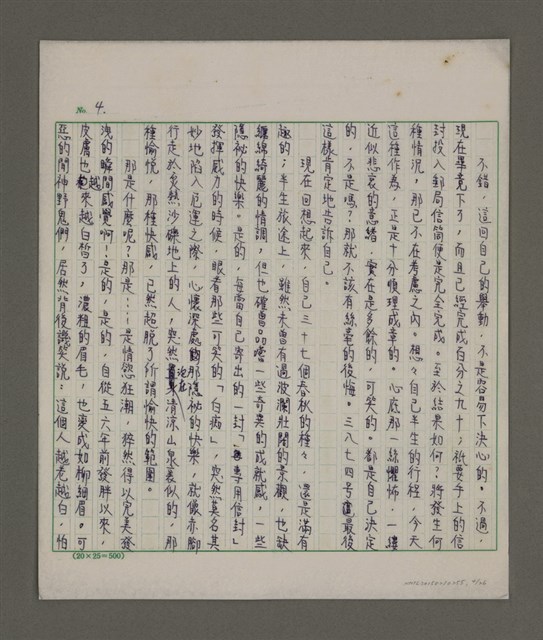 No. 4.
不錯，這回自己的舉動，不是容易下決心的。不過，
現在畢竟下了，而且已經完成百分之九十；祇要手上的信
討投入郵局信筒便是完全完成。至於結果如何？將發生何
種情況，那已不在考慮之內。想々自己半生的行程，今天
這種作為，正是十分順理成章的。心底那一絲懼怖，一縷
近似悲哀的意緒，實在是多餘的，可笑的。都是自己決定
的，不是嗎？那就不該有絲毫的後悔。三八七四号最後
這樣肯定地告訴自己。
現在回想起來，自己三十七個春秋的種々，還是滿有
趣的；半生旅途上，雖然未曾有過波瀾壯闊的景觀，也缺
纏綿綺麗的情調，但也確曾品嚐一些奇異的成就感，一些
隱祕的快樂。是的，每當自己寄出的一封「專用信封」
發揮威力的時候，眼看那些可笑的「白痴」，突然莫名其
妙地陷入厄運之際，心懷深處那隱祕的快樂，就像赤腳
行走於炙熱沙礫地上的人，突然沁在清涼山泉裏似的，那
種愉悅，那種快感，已然超脫了所謂愉快的範圍。
那是什麼呢？那是……是情慾狂潮，猝然得以完美發
洩的瞬間感覺啊！是的，是的，自從五六年前發胖以來，
皮膚也越來越白皙了，濃粗的眉毛，也變成如柳細眉。可
惡的閒神野鬼們，居然背後譏笑說：這個人越老越白，怕
(20×25=500)